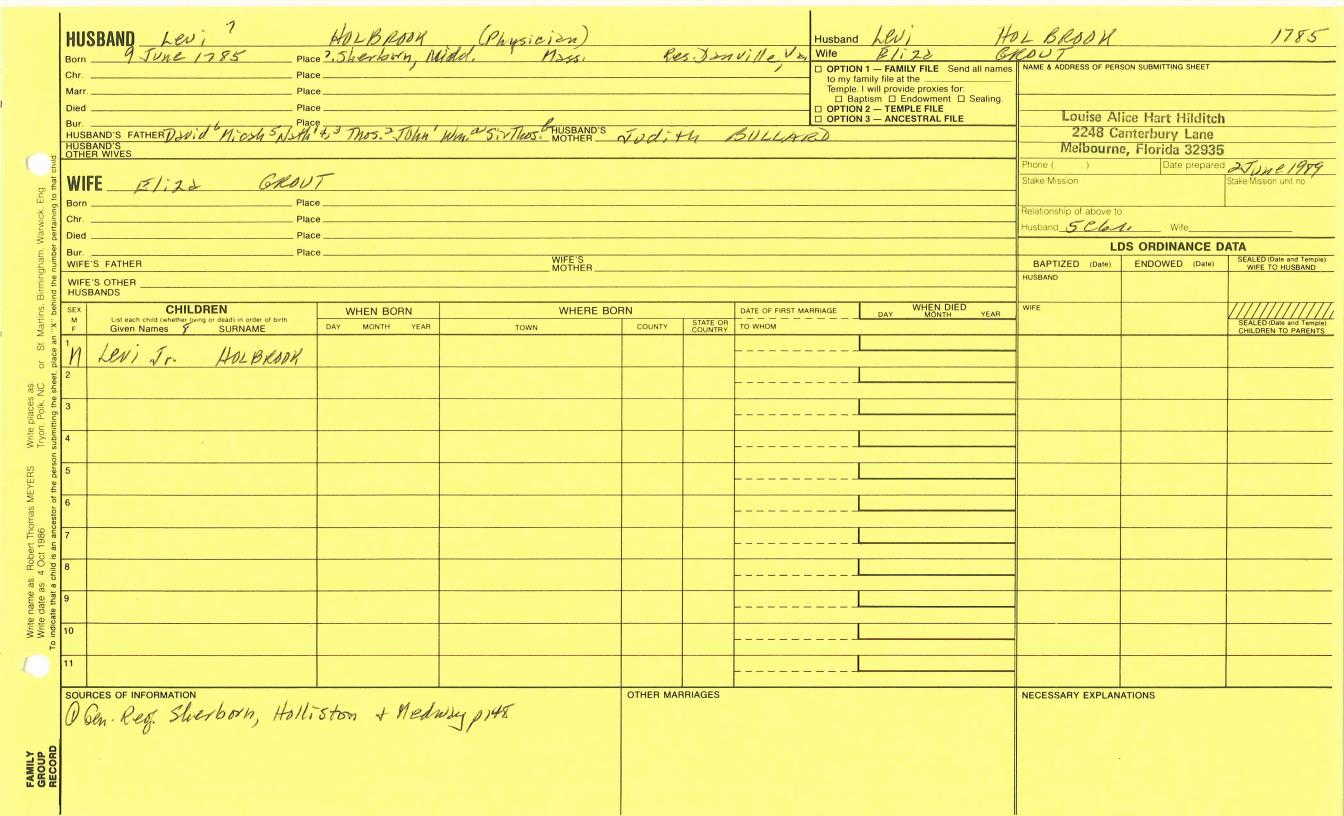 HUSBAND Levi 7 HOLBROOK (Physician)
Born 9 June 1785 Place ?. Sherborn, Midd. Mass. Res. Danville, Va
Chr. Place
Marr. Place
Died Place
Bur. Place
HUSBAND'S FATHER David 6 Micah 5 Nath 4, 3 Thos. 2 John 1 Wm. a Sir Thos. b HUSBAND'S MOTHER Judith BULLARD
HUSBAND'S OTHER WIVES
Husband Levi HOLBROOK 1785
Wife Eliza GROUT
☐ OPTION 1 — FAMILY FILE Send all names
to my family file at the
Temple. I will provide proxies for:
☐ Baptism ☐ Endowment ☐ Sealing.
☐ OPTION 2 — TEMPLE FILE
☐ OPTION 3 — ANCESTRAL FILE
NAME & ADDRESS OF PERSON SUBMITTING SHEET
Louise Alice Hart Hilditch
2248 Canterbury Lane
Melbourne, Florida 32935
Phone ( ) Date prepared 2 June 1989
Stake Mission Stake Mission unit no.
Relationship of above to
Husband Wife
WIFE Eliza GROUT
Born Place
Chr. Place
Died Place
Bur. Place
WIFE'S FATHER WIFE'S MOTHER
WIFE'S OTHER HUSBANDS
LDS ORDINANCE DATA
BAPTIZED (Date) ENDOWED (Date) SEALED (Date and Temple) WIFE TO HUSBAND
HUSBAND
WIFE
SEALED (Date and Temple) CHILDREN TO PARENTS
SEX M F
CHILDREN
List each child (whether living or dead) in order of birth
Given Names 8 SURNAME
WHEN BORN
DAY MONTH YEAR
WHERE BORN
TOWN COUNTY STATE OR COUNTRY
DATE OF FIRST MARRIAGE
TO WHOM
WHEN DIED
DAY MONTH YEAR
1 M Levi Jr. HOLBROOK
2
3
4
5
6
7
8
9
10
11
SOURCES OF INFORMATION
① Gen. Reg. Sherborn, Holliston + Medway p148
OTHER MARRIAGES
NECESSARY EXPLANATIONS
Write name as Robert Thomas MEYERS Write places as Tryon, Polk, NC or St. Martins, Birmingham, Warwick, Eng.
Write date as 4 Oct 1986
To indicate that a child is an ancestor of the person submitting the sheet, place an "X" behind the number pertaining to that child.
FAMILY GROUP RECORD